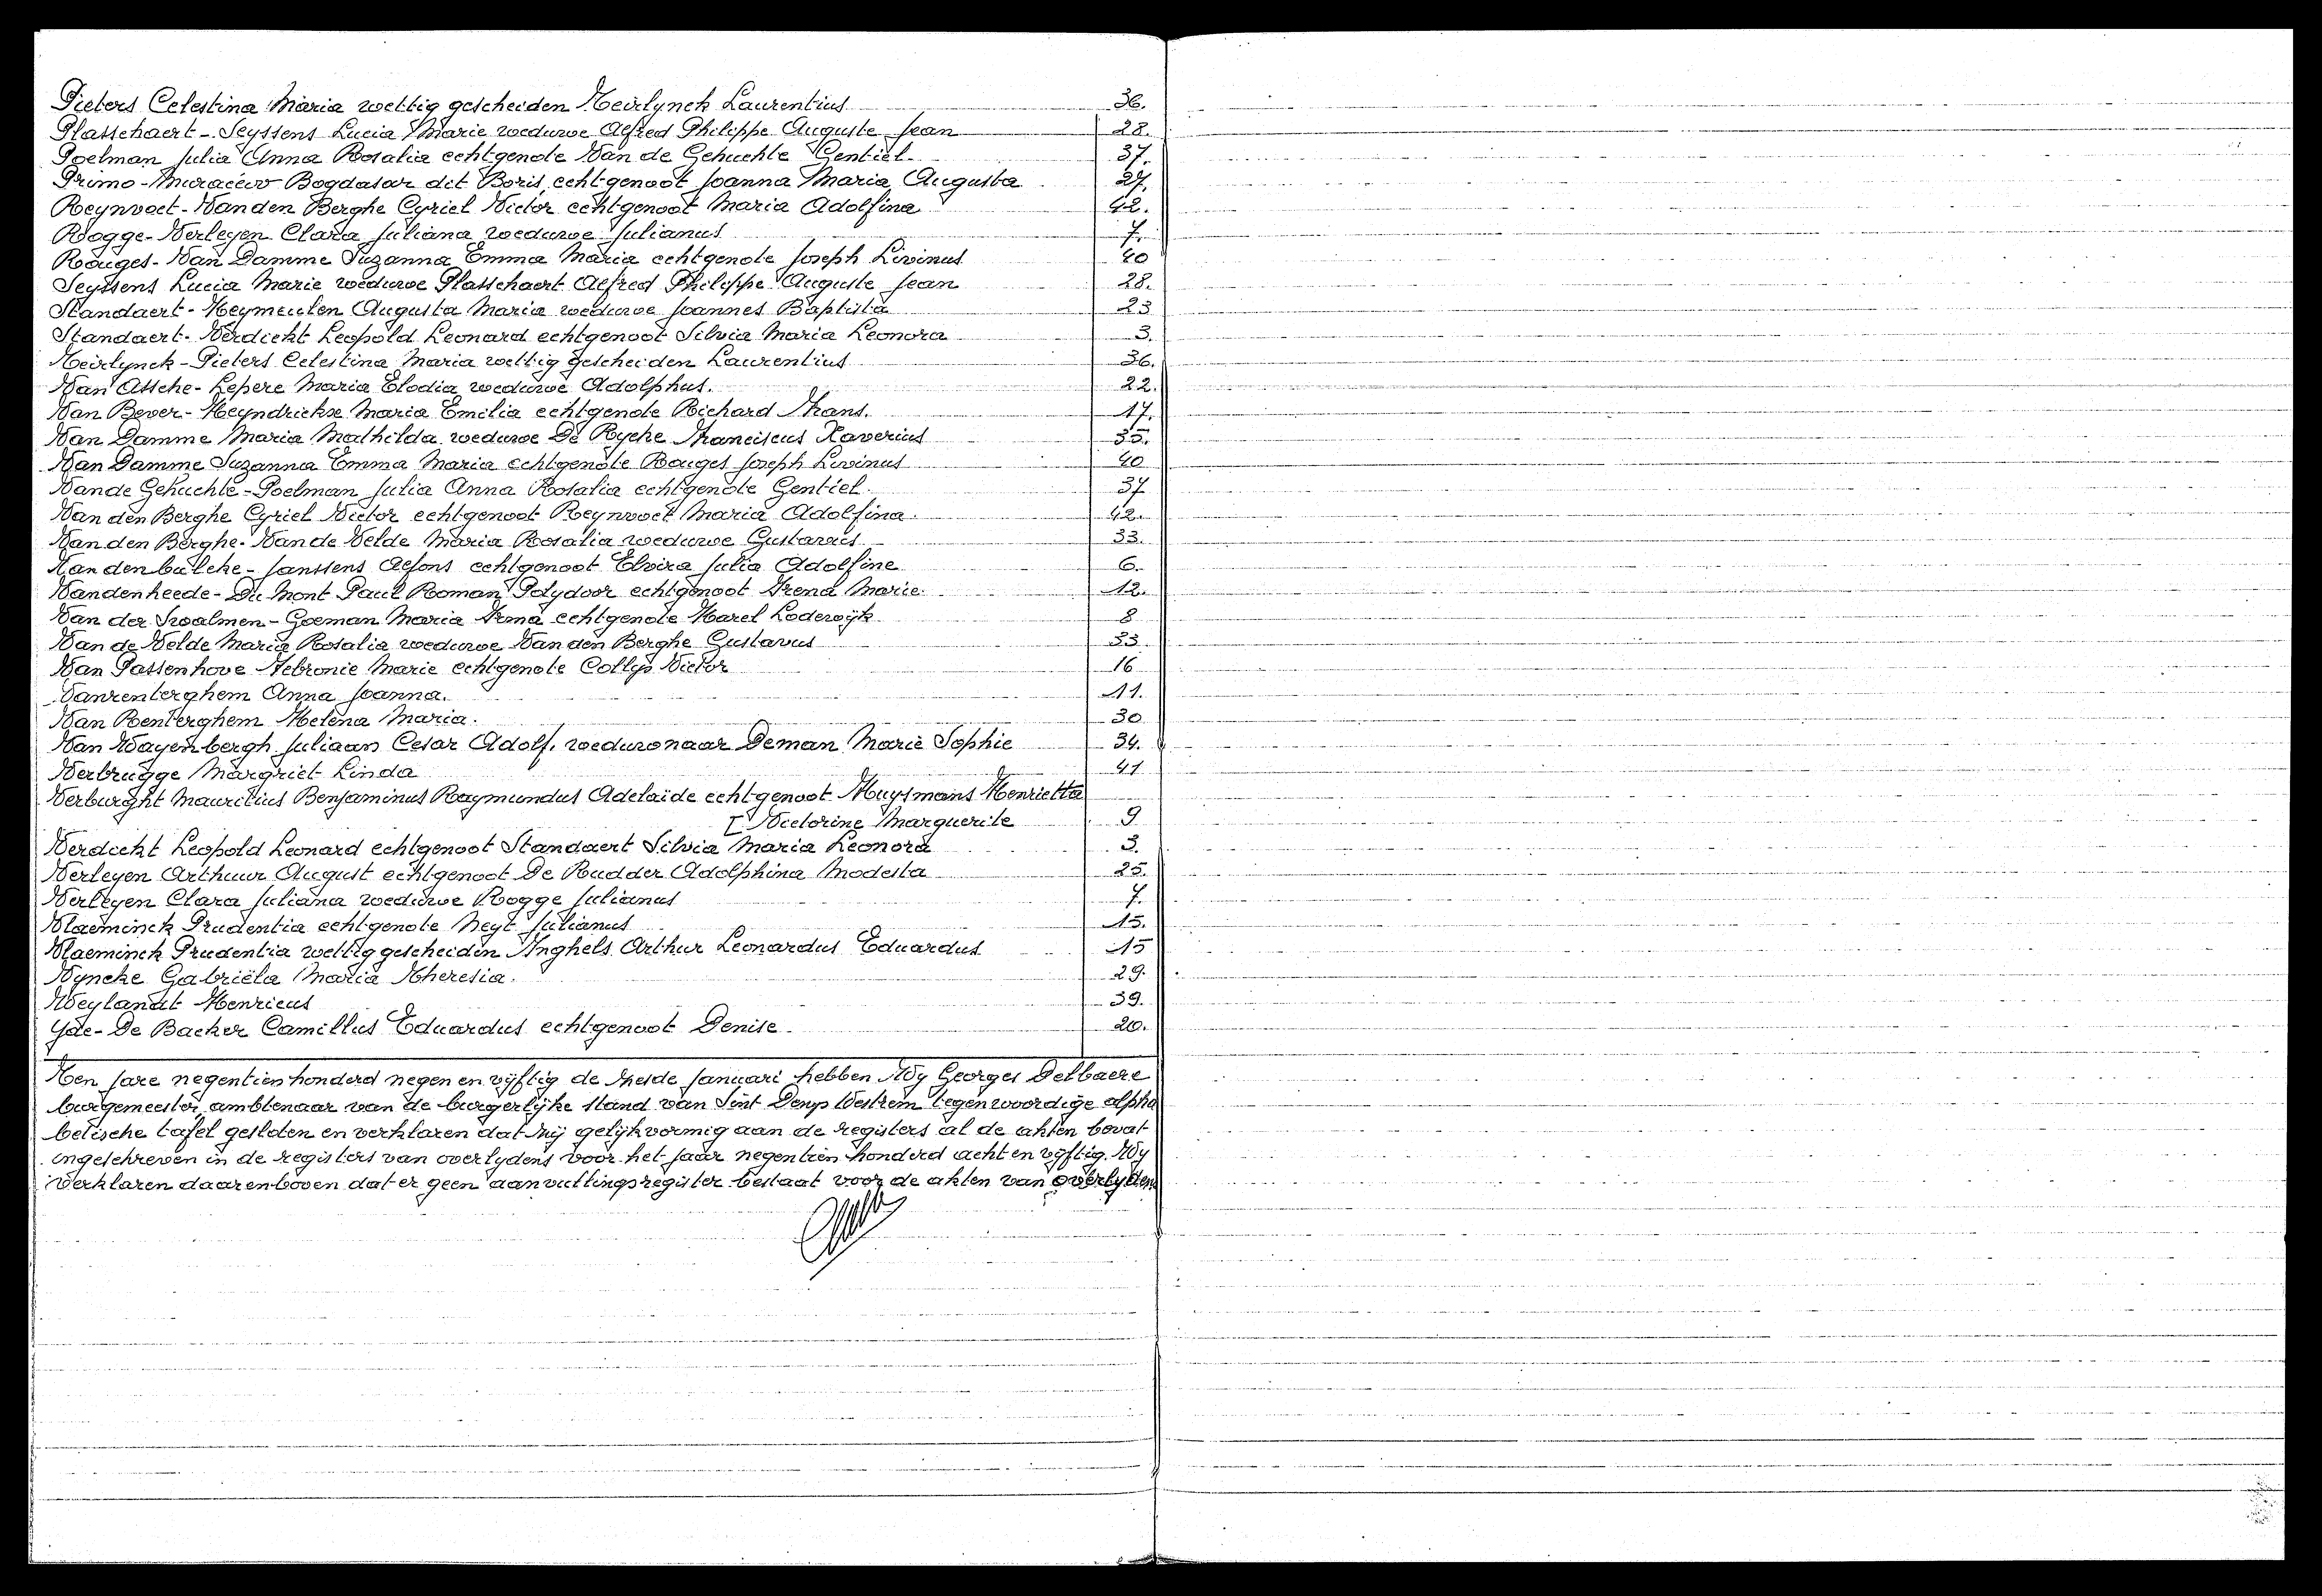 Pieters Celestina Maria wettig gescheiden Teirlynck Laurentius 36.
Plasschaert - Seyssens Lucia Marie weduwe Alfred Philippe Auguste Jean 28.
Poelman Julia Anna Rosalia echtgenote Van de Gehuchte Gentiel. 37.
Primo - Muraciew Bogdasar dit Boris, echtgenoot Joanna Maria Augusta 27.
Reynvoet - Van den Berghe Cyriel Victor echtgenoot Maria Adolfina 42.
Rogge - Verleyen Clara Juliana weduwe Julianus 7.
Rouges - Van Damme Suzanna Emma Maria echtgenote Joseph Livinus 40
Seyssens Lucia Marie weduwe Plasschaert Alfred Philippe Auguste Jean 28.
Standaert - Heymeulen Augusta Maria weduwe Joannes Baptista 23
Standaert - Verdickt Leopold Leonard echtgenoot Silvia Maria Leonora 3.
Teirlynck - Pieters Celestina Maria wettig gescheiden Laurentius 36.
Van Assche - Lepere Maria Elodia weduwe Adolphus. 22.
Van Bever - Heyndrickx Maria Emilia echtgenote Richard Frans. 17.
Van Damme Maria Mathilda weduwe De Rycke Franciscus Xaverius 35.
Van Damme Suzanna Emma Maria echtgenote Rouges Joseph Livinus 40
Van de Gehuchte - Poelman Julia Anna Rosalia echtgenote Gentiel. 37
Van den Berghe Cyriel Victor echtgenoot Reynvoet Maria Adolfina. 42.
Van den Berghe - Van de Velde Maria Rosalia weduwe Gustavus 33.
Vandenbulcke - Janssens Alfons echtgenoot Elvira Julia Adolfine 6.
Vandenheede - Du Mont Paul Roman Polydoor echtgenoot Irena Marie. 12.
Van der Swalmen - Goeman Maria Irma echtgenote Karel Lodewijk 8
Van de Velde Maria Rosalia weduwe Van den Berghe Gustavus 33
Van Passenhove Febronie Marie echtgenote Collys Victor 16
Vanrenterghem Anna Joanna. 11.
Van Renterghem Helena Maria. 30
Van Wayenbergh Juliaan Cesar Adolf, weduwnaar Deman Marie Sophie 34.
Verbrugge Margriet Linda 41
Verburght Mauritius Benjaminus Raymundus Adelaïde echtgenoot Huysmans Henrietta
[ Victorine Marguerite 9
Verdickt Leopold Leonard echtgenoot Standaert Silvia Maria Leonora 3.
Verleyen Arthuur August echtgenoot De Rudder Adolphina Modesta 25.
Verleyen Clara Juliana weduwe Rogge Julianus 7.
Vlaeminck Prudentia echtgenote Neyt Julianus 15.
Vlaeminck Prudentia wettig gescheiden Inghels Arthur Leonardus Eduardus 15
Vyncke Gabriëla Maria Theresia. 29.
Weylandt Henricus 39.
Yde - De Backer Camillus Eduardus echtgenoot Denise. 20.
Ten jare negentien honderd negen en vyftig de tweede Januari hebben Wy Georges Delbaere
burgemeester, ambtenaar van de burgerlyke stand van Sint Denys Westrem tegenwoordige alpha
betische tafel gesloten en verklaren dat zij gelykvormig aan de registers al de akten bevat
ingeschreven in de registers van overlydens voor het jaar negentien honderd acht en vyftig. Wy
verklaren daarenboven dat er geen aanvullingsregister bestaat voor de akten van overlyden